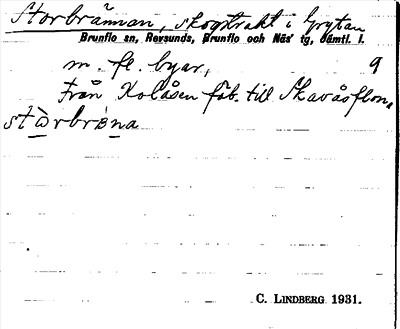 Storbrännan, skogstrakt i Grytan
Brunflo sn, Revsunds, Brunflo och Näs' tg, Jämtl. l.
m. fl. byar, 9
Från Kolåsen fäb. till Skavåsflon.
C. LINDBERG 1931.